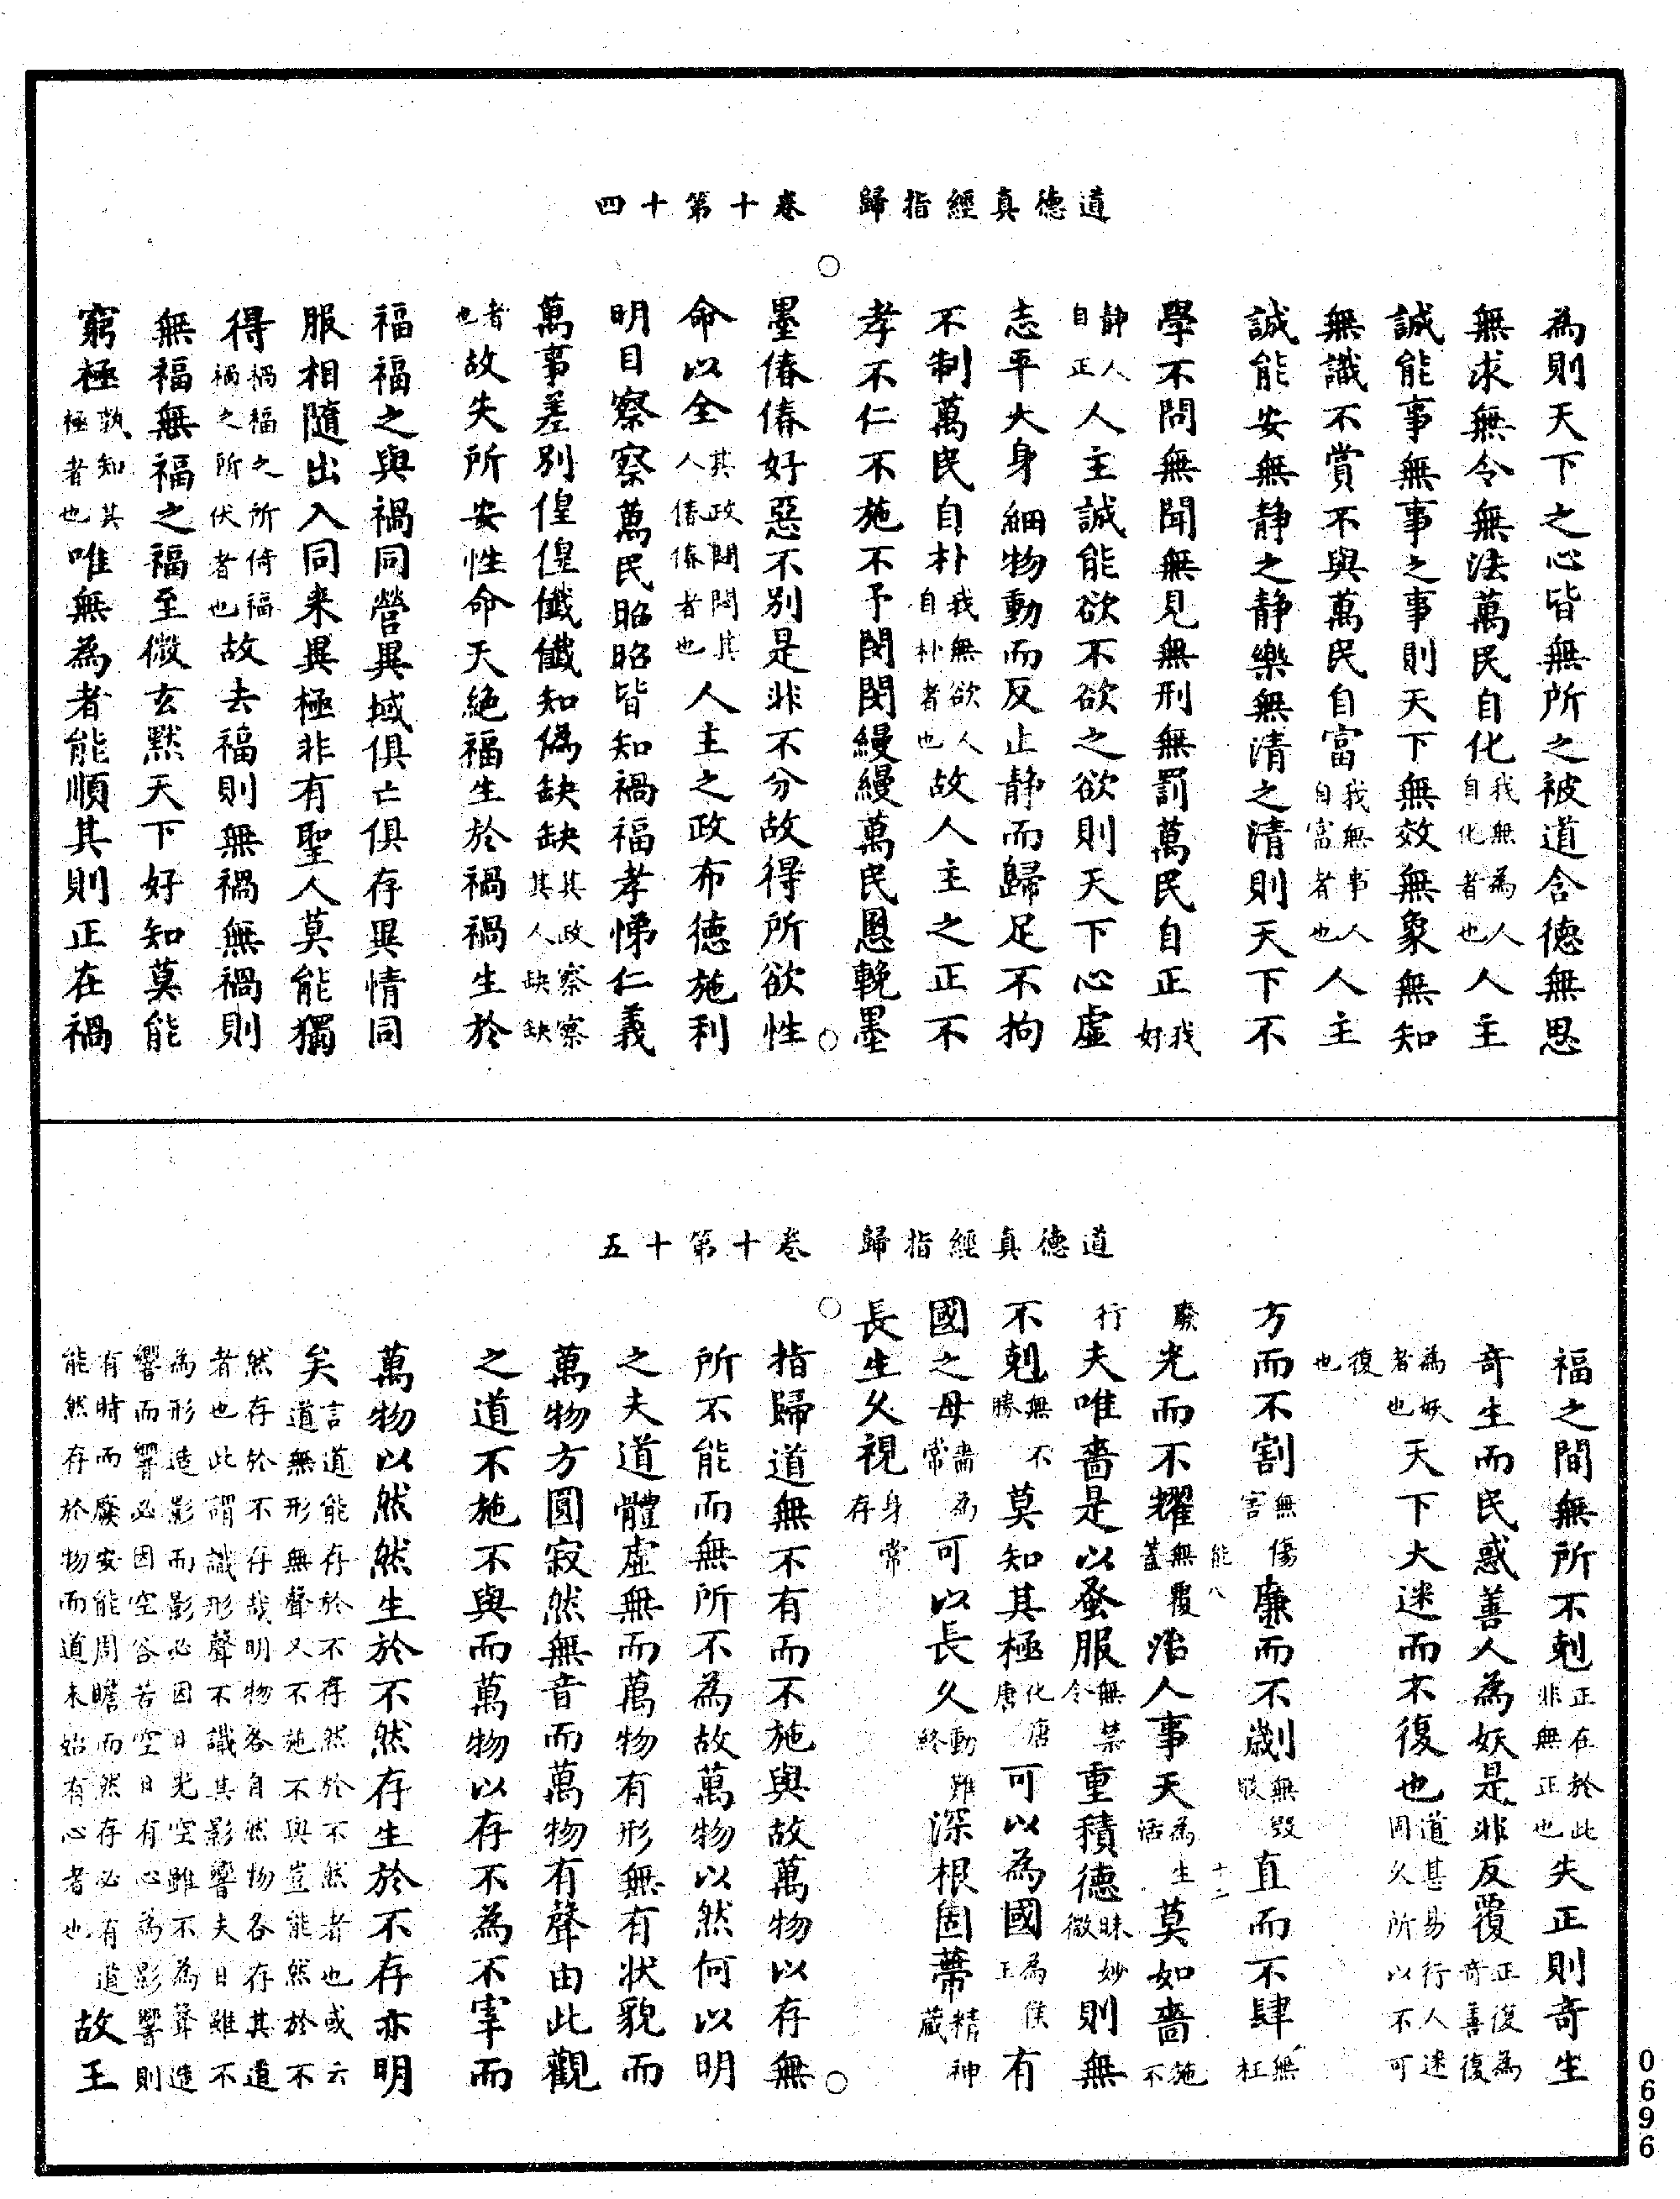 道德真經指歸　卷十第十四
為則天下之心皆無所之被道含德無思
無求無令無法萬民自化我無為人自化者也人主
誠能事無事之事則天下無效無象無知
無識不賞不與萬民自富我無事人自富者也人主
誠能安無静之静樂無清之清則天下不
學不問無聞無見無刑無罰萬民自正我好
静人自正人主誠能欲不欲之欲則天下心虛
志平大身細物動而反止静而歸足不拘
不制萬民自朴我無欲人自朴者也故人主之正不
孝不仁不施不予閔閔縵縵萬民恩輓墨
墨偆偆好惡不別是非不分故得所欲性
命以全其政悶悶其人偆偆者也人主之政布德施利
明目察察萬民昭昭皆知禍福孝悌仁義
萬事差別偟偟懺懺知偽缺缺其政察察其人缺缺
者也故失所安性命夭絕福生於禍禍生於
福福之與禍同營異域俱亡俱存異情同
服相隨出入同来異極非有聖人莫能獨
得禍福之所倚福禍之所伏者也故去福則無禍無禍則
無福無福之福至微玄默天下好知莫能
窮極孰知其極者也唯無為者能順其則正在禍
道德真經指歸　卷十第十五
福之間無所不剋正在於此非無正也失正則奇生
奇生而民惑善人為妖是非反覆正復為奇善復
為妖者也天下大迷而不復也道甚易行人迷固久所以不可
復也
方而不割無傷害廉而不劌無毀賅直而不肆無枉
能八　十二
廢光而不耀無覆蓋治人事天為生活莫如嗇施不
行夫唯嗇是以蚤服無禁令重積德昧妙微則無
不剋無不勝莫知其極化唐唐可以為國為侯王有
國之母嗇為常可以長久動難終深根固蔕精神藏
長生久視身常存
指歸道無不有而不施與故萬物以存無
所不能而無所不為故萬物以然何以明
之夫道體虛無而萬物有形無有状貌而
萬物方圓寂然無音而萬物有聲由此觀
之道不施不與而萬物以存不為不宰而
萬物以然然生於不然存生於不存亦明
矣言道能存於不存然於不然者也或云道無形無聲又不施不與豈能然於不
然存於不存哉明物各自然物各存其道者也此謂識形聲不識其影響夫日雖不
為形造影而影必因日光空雖不為聲造響而響必因空谷若空日有心為影響則
有時而廢安能周瞻而然存必有道能然存於物而道未始有心者也故王
0696